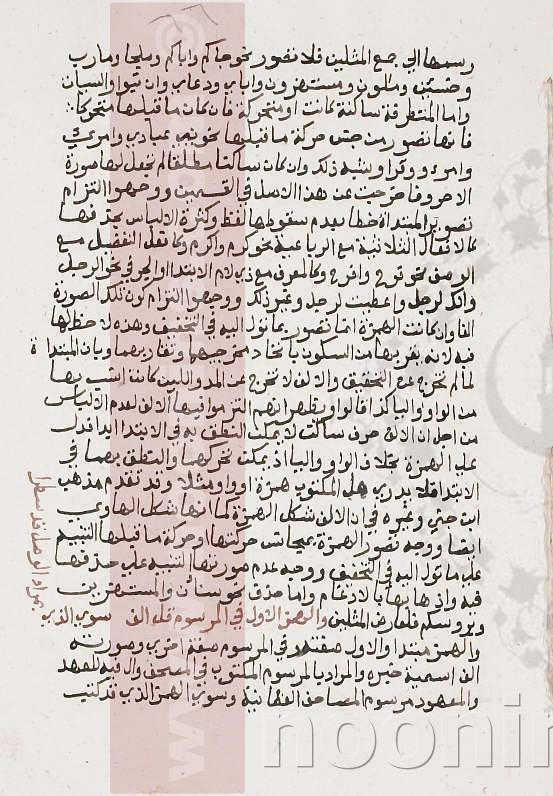 رسمها الي جمع المثلين فلا تصور نحو جاكم واباكم وملجا ومارب
وخسئين ومالون ومستهزون واباي ودعاي وان تبوا والسيات
واما المتطرفة ساكنة كانت او متحركة فان كان ما قبلها متحركا
فانها تصور من جنس حركة ما قبلها نحو نبي عبادي وامرئي
وامر وقرا وشبه ذلك وان كان ساكنا مطلقا لم تجعل لها صورة
الا حروفا خرجت عن هذا الاصل في القسمين ووجهوا التزام
تصوير المبتداة خطا بعدم سقوطها لفظا وكثرة الالباس بحذفها
كالافعال الثلاثية مع الرباعية نحو كرم واكرم وكافعل التفضيل مع
الوصف نحو فرح وافرح وكالمعرف مع ذي لام الابتدا او الجر في نحو الرجل
والك لرجل واعطيت لرجل وغير ذلك ووجهوا التزام كون تلك الصورة
الفا وان كانت الهمزة انما تصور بما تول اليه في التخفيف وهذه لا حظ لها
فيه لانه يقربها من السكون باتحاد مخرجيهما وتقاربهما وبان المبتداة
لما لم تخرج عن التحقيق والالف لا تخرج عن المد واللين كانت اشبه بها
من الواو واليا كذا قالوا ويظهر انهم التزموا فيها الالف لعدم الالباس
من اجل ان الالف حرف ساكن لا يمكن النطق به في الابتدا ابدا فدل
علي الهمزة بخلاف الواو واليا اذ يمكن تحركهما والنطق بهما في
الابتدا فلا يدري هل المكتوب همزة او واو مثلا وقد تقدم مذهب
ابن جني وغيره في ان الالف شكل الهمزة كما انها شكل الهاوي
ايضا ووجه تصور الهمزة بمجانس حركتها او حركة ما قبلها التنبيه
علي ما تول اليه في التخفيف ووجه عدم صورتها التنبيه علي حذفها
فيه واذهابها بالادغام واما حذف نحو سنان والمستهزين
ويروسكم فلعارض المثلين والهمز الاول في المرسوم قله الف سوي الذي
بمراد الوصل قد سطرا
والهمز مبتدا والاول صفته وفي المرسوم صفة اخري وصورته
الف اسمية خبره والمراد بالمرسوم المكتوب في المصحف وال فيه للعهد
والمعهود مرسوم المصاحف العثمانية وسوي الهمز الذي قد كتب
noonin